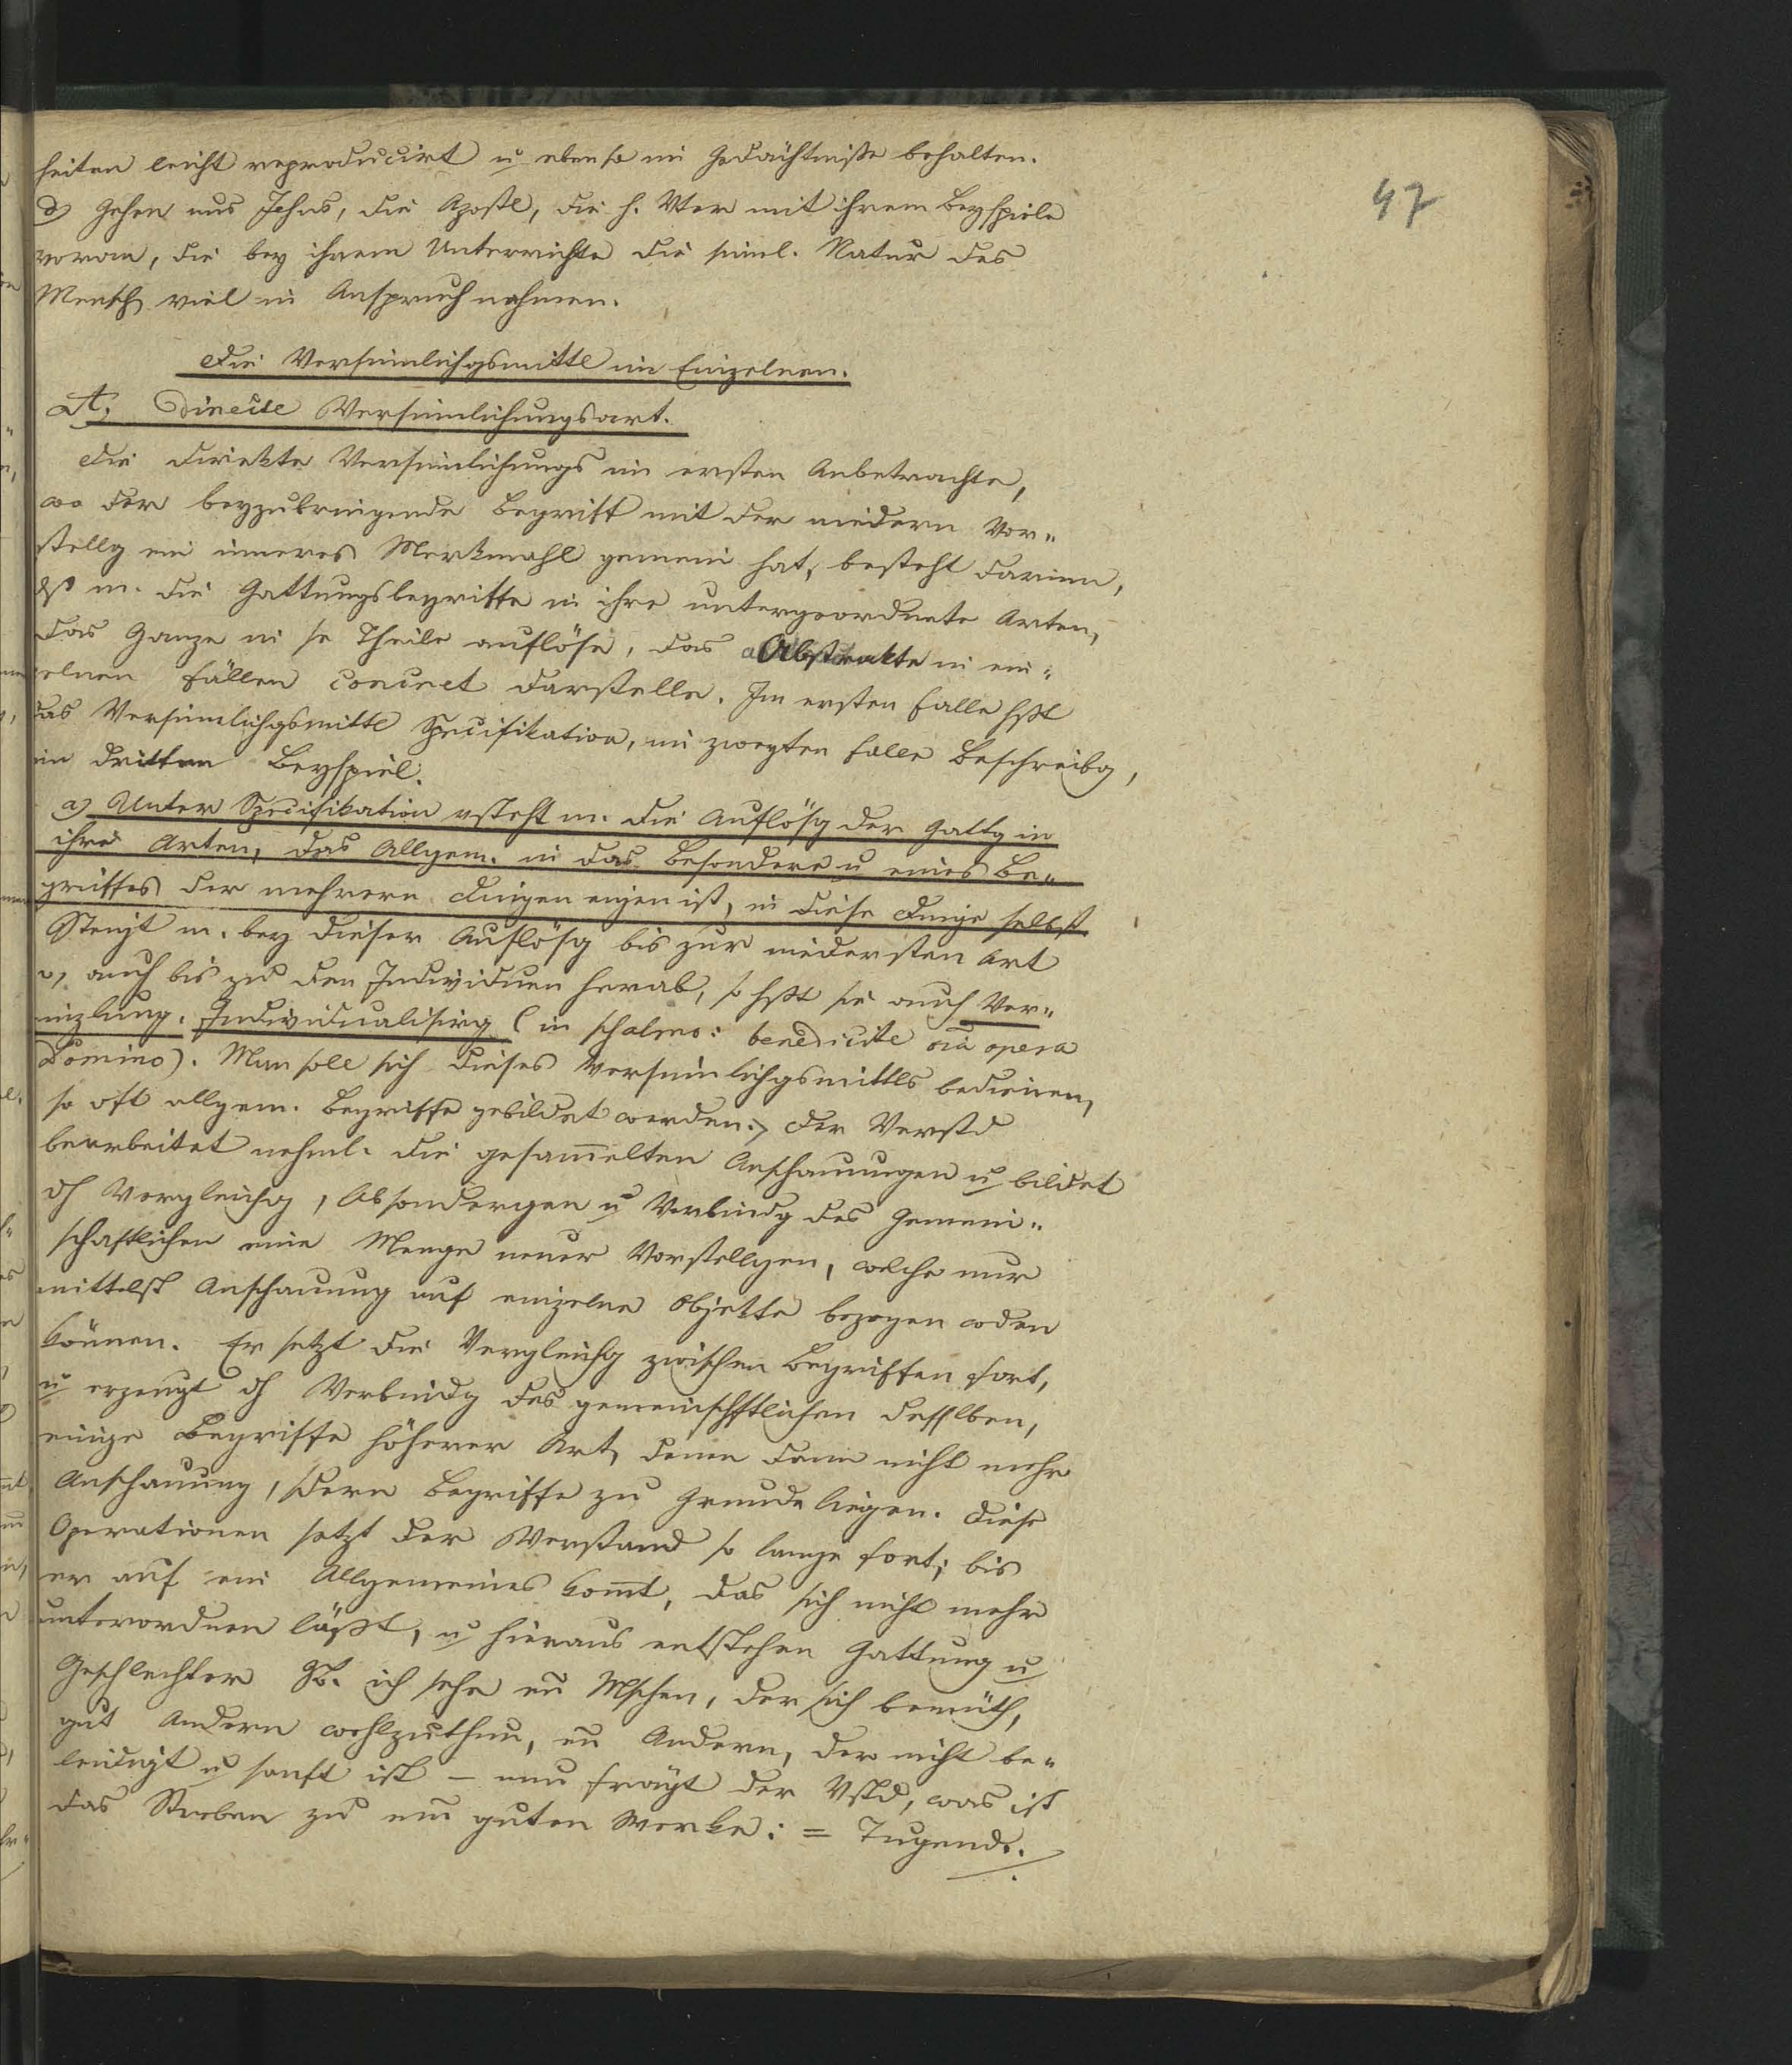 47
heiten leicht reproducirt u ebenso im Gedächtnisse behalten.
d) Gehen uns Jesus, die Apostl, die h. Väter mit ihrem Beyspiele
voran, die bey ihrem Unterrichte die sinnl. Natur des
Mensch viel in Anspruch nahmen.
Die Versinnlichgsmittl im Einzelnen.
A. Directe Versinnlichungsart.
Die direkte Versinnlichungs im ersten Anbetrachte,
wo der beyzubringende Begriff mit der niedern Vor-
stellg ein inneres Merkmahl gemein hat, besteht darinn,
dß m. die Gattungsbegriffe in ihre untergeordnete Arten,
das Ganze in se Theile auflöse, das Abstrakte in ein-
zelnen Fällen concret darstelle. Im ersten Falle hßt
das Versinnlichgsmittl Specifikation, im zweyten Falle Beschreibg,
im dritten Beyspiel.
a) Unter Specifikation vsteht m. die Auflösg der Gattg in
ihre Arten, das Allgem. in das Besondere u eines Be-
griffes der mehrern Dingen eigen ist, in diese Dinge selbst.
Steigt m. bey dieser Auflösg bis zur niedersten Art
o, auch bis zu den Individuen herab, so hßt sie auch Ver-
einzlung. Individualisirg (in psalmo: benedicite oia opera
Domino). Man soll sich dieses Versinnlichgsmittls bedienen,
so oft allgem. Begriffe gebildet werden. Der Verstd
bearbeitet nehml. die gesam̅elten Anschauungen u bildet
dh Vergleichg, Absondergen u Verbindg des Gemein-
schaftlichen eine Menge neuer Vorstellgen, welche nur
mittelst Anschauung auf einzelne Objekte bezogen wden
können. Er setzt die Vergleichg zwischen Begriffen fort,
u erzeugt dh Verbindg des gemeinschftlichen desselben,
einige Begriffe höherer Art, denen dann nicht mehr
Anschauung, sdern Begriffe zu Grunde liegen. Diese
Operationen setzt der Verstand so lange fort, bis
er auf ein Allgemeines kom̅t, das sich nicht mehr
unterordnen läßt, u hieraus entstehen Gattung u
Geschlechter. zB. ich sehe ein̅ Mschen, der sich bemüth,
gut Andern wohlzuthun, ein̅ Andern, der nicht be-
leidigt u sanft ist – nun frägt der Vstd, was ist
das Streben zu ein guten Werke: = Tugend.